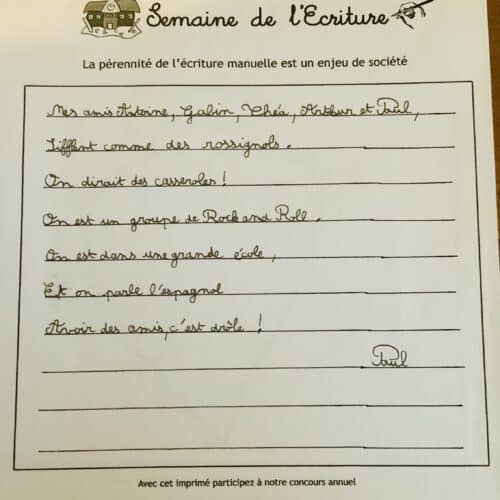 Semaine de l'Ecriture
La pérennité de l'écriture manuelle est un enjeu de société
Mes amis Antoine, Gabin, Théa, Arthur et Paul,
Sifflent comme des rossignols.
On dirait des casseroles !
On est un groupe de Rock and Roll.
On est dans une grande école,
Et on parle l'espagnol
Avoir des amis, c'est drôle !
Paul
Avec cet imprimé participez à notre concours annuel